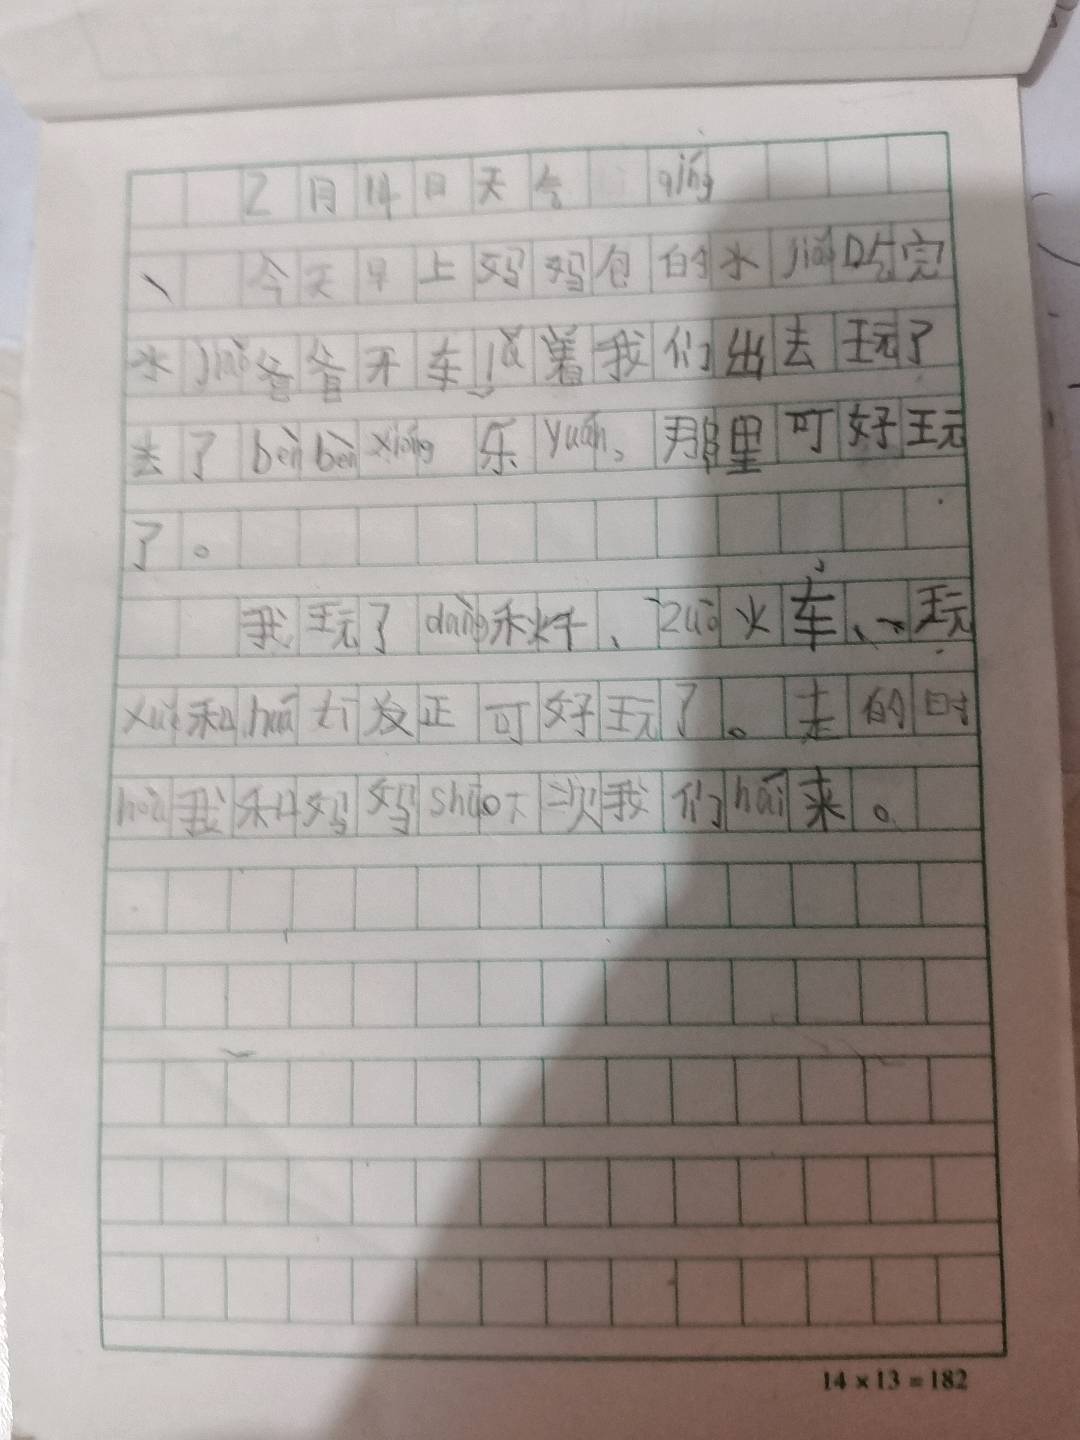 2月14日天气 qíng
今天早上妈妈包的水jiǎo吃完
水jiǎo爸爸开车lā着我们出去玩了
去了bènbènxióng乐yuán、那里可好玩
了。
我玩了dàng秋千、zuò火车、玩
xuě和huá 发正可好玩了。走的时
hòu我和妈妈shuō下次我们hái来。
14×13=182